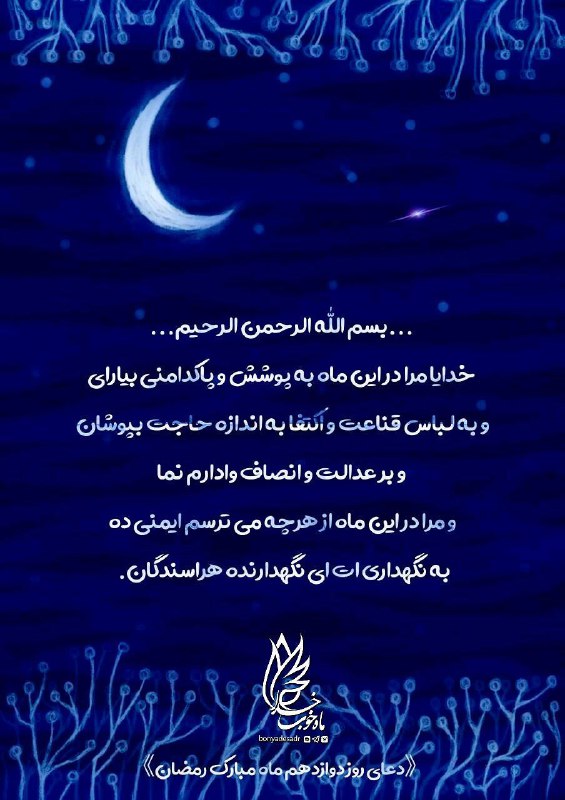 ...بسم الله الرحمن الرحیم...
خدایا مرا در این ماه به پوشش و پاکدامنی بیارای
و به لباس قناعت و اکتفا به اندازه حاجت بپوشان
و بر عدالت و انصاف وادارم نما
و مرا در این ماه از هرچه می ترسم ایمنی ده
به نگهداری ات ای نگهدارنده هراسندگان.
ماه خوب خدا
bonyadesadr
《دعای روز دوازدهم ماه مبارک رمضان》